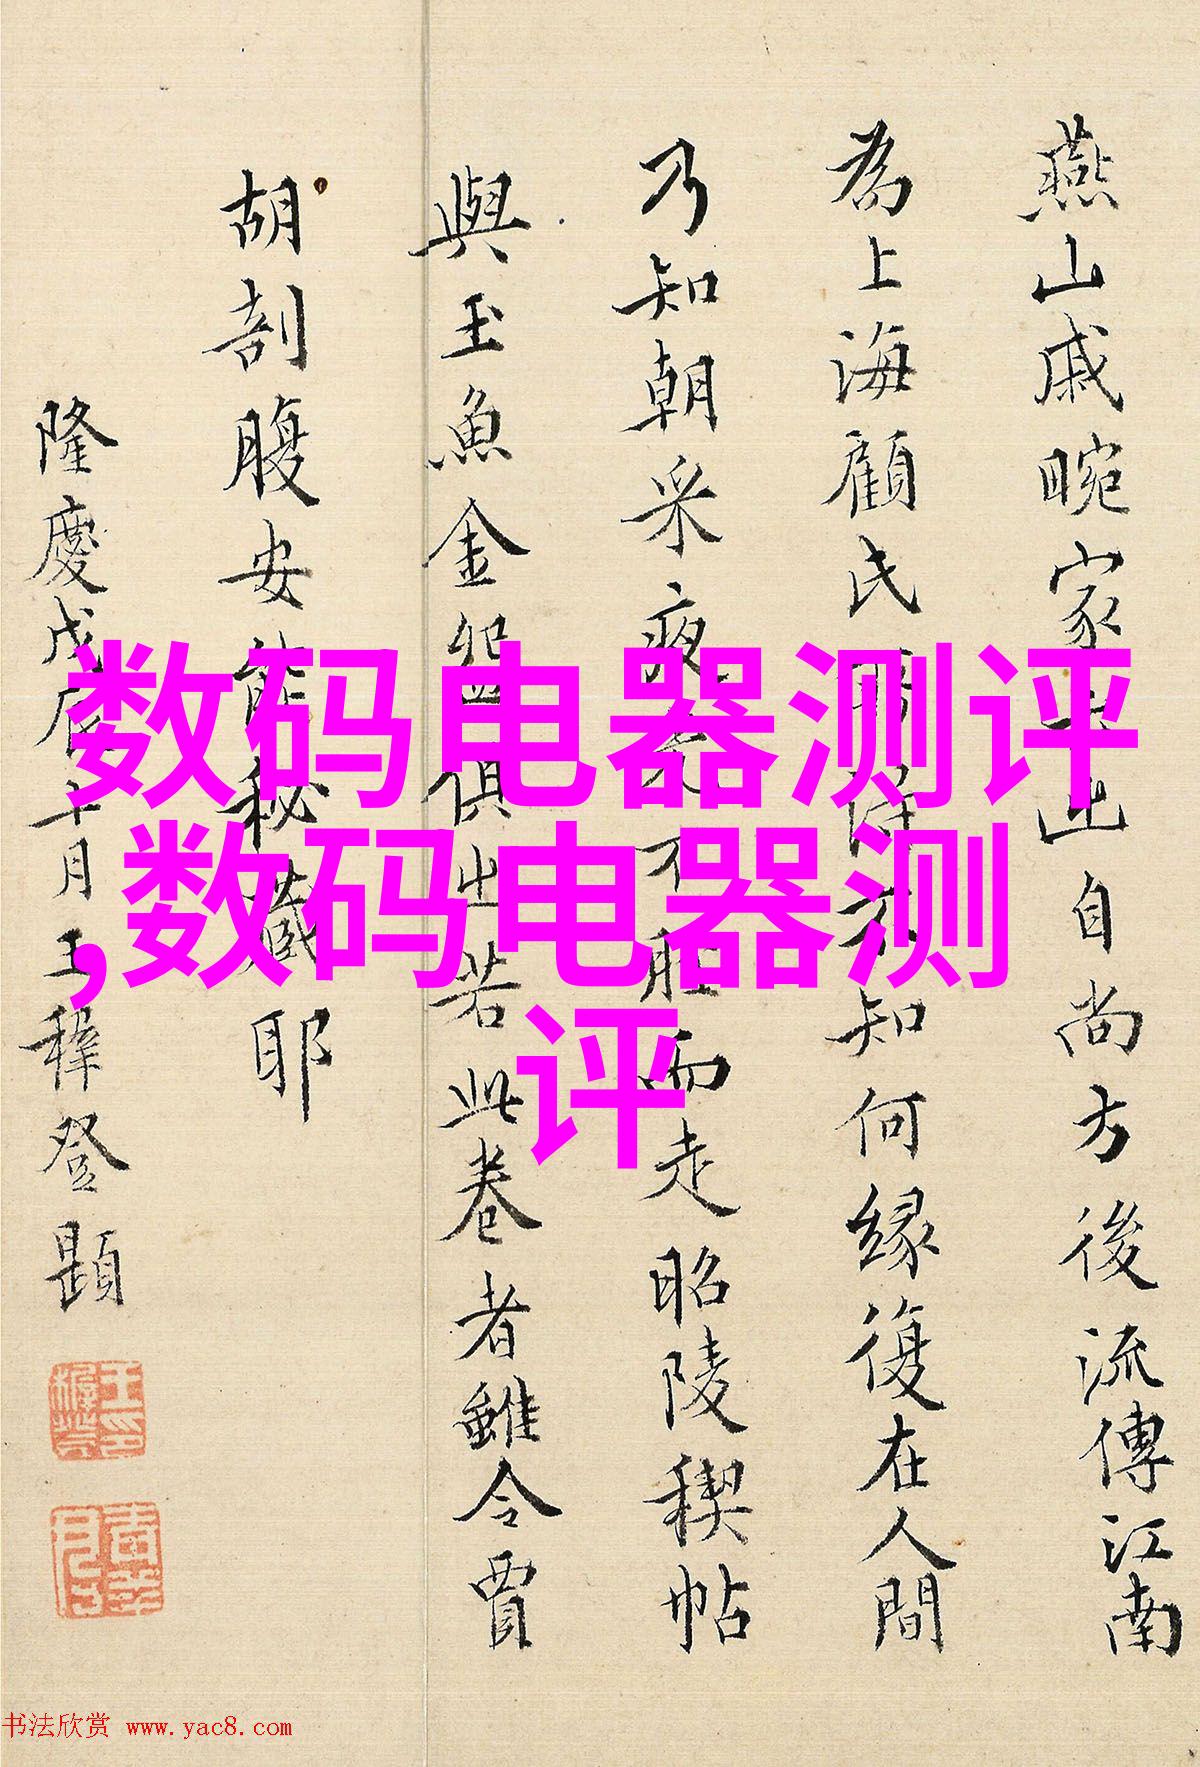 燕山戚畹家出自尚方後流傳江南
為上海顧氏知何緣復在人間
乃知朝采夜不脛而走昭陵稧帖
與玉魚金俱出若此卷者雖令賈
胡剖腹安能秘藏耶
隆慶戊辰十月王穉登題
数码电器测评
,数码电器测
评
书法欣赏 www.yac8.com